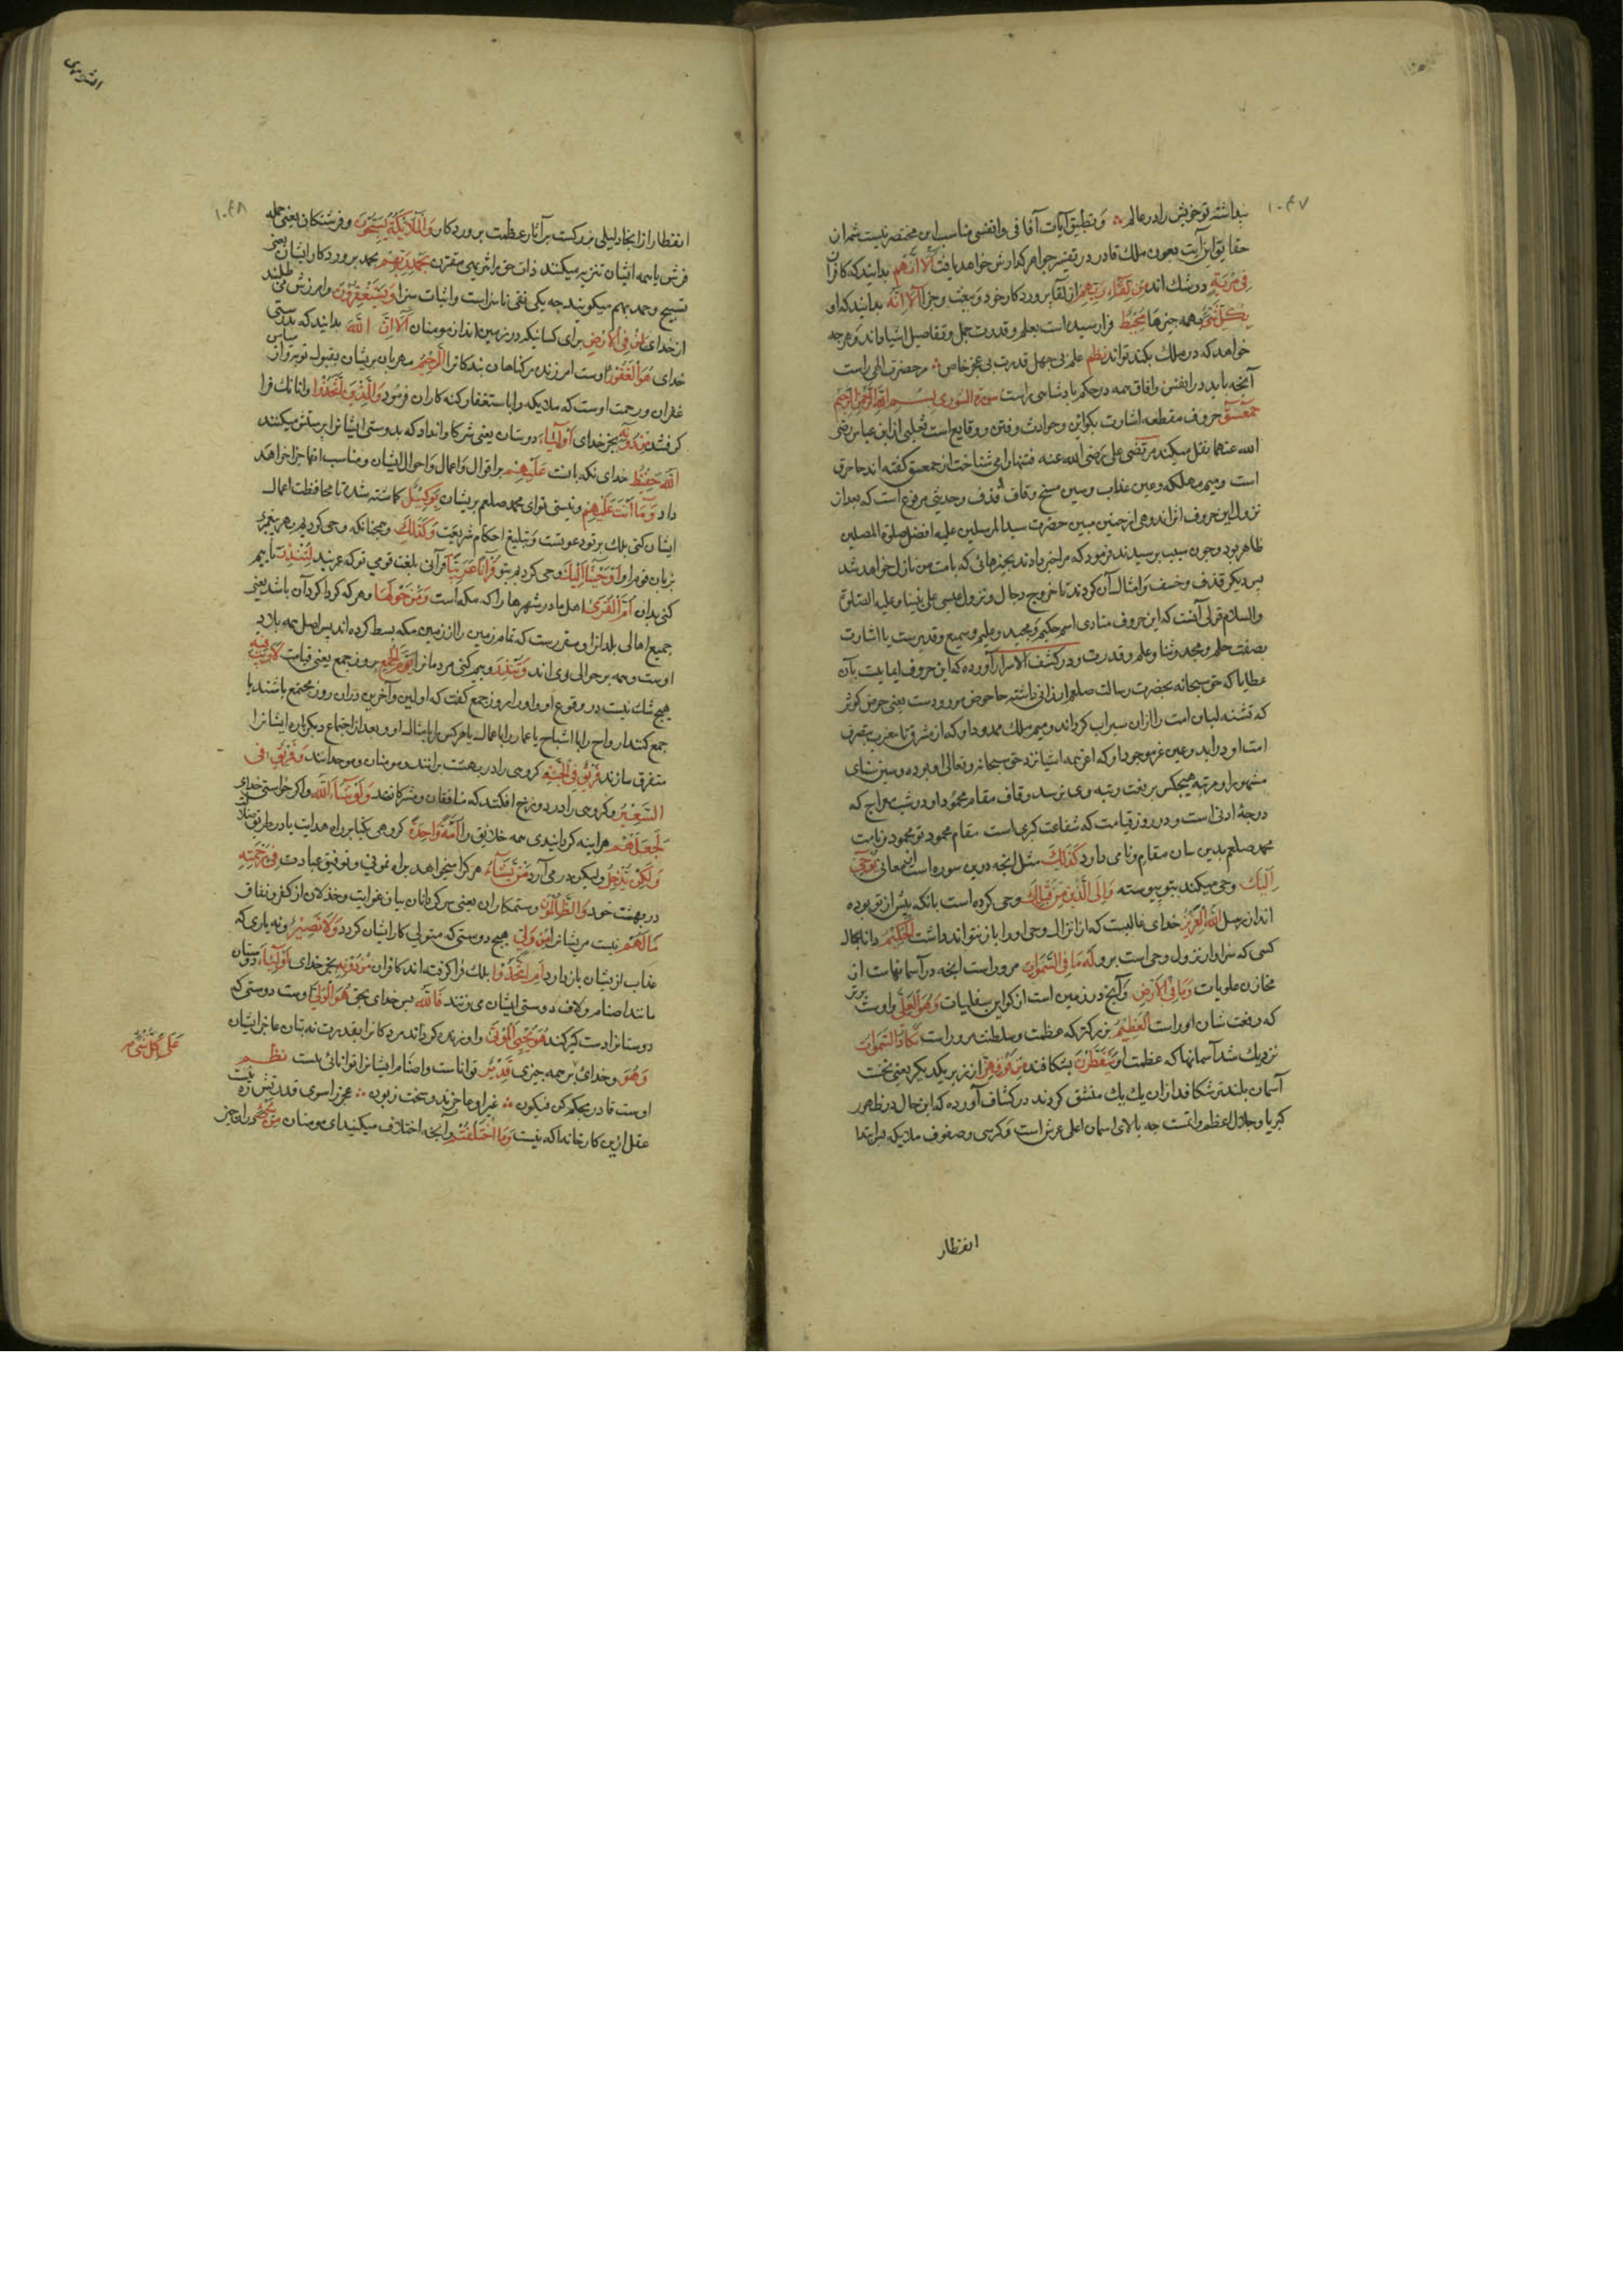 ۱۰۴۷
پنداشته تو خویش را در عالم ؞ و تطبیق آیات آفاقی و انفسی مناسب این مختصر نیست شمه از آن
حقایق این آیت بعون ملک قادر در تفسیر جواهر گذارش خواهد یافت أَلَا إِنَّهُمْ بدانید که کافران
فِي مِرْيَةٍ در شک اند مِنْ لِقَاءِ رَبِّهِمْ از لقا پروردکار خود و بعث و جزا أَلَا إِنَّهُ بدانید که او
بِكُلِّ شَيْءٍ بهمه چیزها مُحِيطٌ فرا رسیده است بعلم و قدرت جمل و تفاصیل اشیا داند و هرچه
خواهد که در ملک بکند تواند نظم علم بی جهل قدرت بی عجز خاص ؞ مر حضرت الهی راست
آنچه باید در انفس و آفاق همه در حکم پادشاهی راست سورة الشوری بسم الله الرحمن الرحیم
حمعسق حروف مقطعه اشارت بکواین و حوادث و فتن و وقایع است ثعلبی از ابن عباس رضی
الله عنهما نقل میکند مرتضی علی رضی الله عنه فتنها را می شناخت از حمعسق کفته اند حا حرق
است و میم مهلکه و عین عذاب و سین مسخ و قاف قذف و حدیثی مرفوع است که بعد از
نزول این حروف اثر اندوهی از جنین مبین حضرت سید المرسلین علیه افضل صلوة المصلین
ظاهر بود و چون سبب پرسیدند فرمود که مرا خبر دادند بچیزهائی که بامت من نازل خواهد شد
پس دیکر قذف و خسف و امثال آن کردند تا خروج دجال و نزول عیسی علی نبینا و علیه الصلوة
والسلام قولی آنست که این حروف مبادی اسم حکیم و مجید و علیم و سمیع و قدیرست یا اشارت
بصفت حلم و مجد و ثنا و علم و قدرت و در کشف الاسرار آورده که این حروف ایمایست بآن
عطایا که حق سبحانه بحضرت رسالت صلعم ارزانی داشته حا حوض مورودست یعنی حوض کوثر
که تشنه لبان امت را از ان سیراب کرداند و میم ملک ممدود او که از مشرق تا مغرب بتصرف
امت او در آید و عین عز موجود او که اعز همه اشیا نزد حق سبحانه و تعالی او بوده و سین سنای
مشهور او مرتبه هیچکس برفعت رتبه وی نرسد و قاف مقام محمود او در شب معراج که
درجهٔ ادنی است و در روز قیامت که شفاعت کبری است مقام محمود تو محمود و نامت
محمد صلعم بدین سان مقام و نامی دارد كَذَٰلِكَ مثل آنچه درین سوره است از معانی يُوحِي
إِلَيْكَ وحی میکند بتو پیوسته وَإِلَى الَّذِينَ مِنْ قَبْلِكَ وحی کرده است بانکه پیش از تو بوده
اند از رسل اللَّهُ الْعَزِيزُ خدای غالبست که از انزال وحی او را باز نتواند داشت الْحَكِيمُ دانا بحال
کسی که سزاوار نزول وحی است برو لَهُ مَا فِي السَّمَاوَاتِ مر و راست آنچه در آسمانهاست از
مخازن علویات وَمَا فِي الْأَرْضِ و آنچ در زمین است از کواین سفلیات وَهُوَ الْعَلِيُّ و اوست برتر
که رفعت شان او راست الْعَظِيمُ بزرکتر که عظمت و سلطنت مر و راست تَكَادُ السَّمَاوَاتُ
نزدیک شد آسمانها که عظمت او يَتَفَطَّرْنَ بشکافند مِنْ فَوْقِهِنَّ از زبر یکدیکر یعنی نخست
آسمان بلندتر شکافد از ان یک یک منشق کردند در کشاف آورده که این حال در ظهور
کبریا و جلال اعظم و اتمست چه بالای اسمان اعلی عرش است و کرسی و صفوف ملایکه پس ابتدا
انفطار
الشوری
۱۰۴۸
انفطار از انجا دلیلی بزرکست بر آثار عظمت پروردکار وَالْمَلَائِكَةُ يُسَبِّحُونَ و فرشتکان یعنی حمله
عرش یا همه ایشان تنزیه میکنند ذات حق را تنزیهی مقترن بِحَمْدِ رَبِّهِمْ بحمد پروردکار ایشان یعنی
تسبیح و حمد بهم میکویند چه یکی نفی ناسزاست و اثبات سزا وَيَسْتَغْفِرُونَ و امرزش می طلبند
از خدای لِمَنْ فِي الْأَرْضِ برای کسانیکه در زمین اند از مومنان أَلَا إِنَّ اللَّهَ بدانید که بدرستی
خدای هُوَ الْغَفُورُ اوست امرزنده مر کناهان بندکانرا الرَّحِيمُ مهربان بریشان بقبول توبه و از
غفران و رحمت اوست که ملایکه را باستغفار کنه کاران فرمود وَالَّذِينَ اتَّخَذُوا و آنانک فرا
کرفتند مِنْ دُونِهِ بجز خدای أَوْلِيَاءَ دوستان یعنی شرکا و انداد که بدوستی ایشانرا پرستش میکنند
اللَّهُ حَفِيظٌ خدای نکهبانست عَلَيْهِمْ بر اقوال و اعمال و احوال ایشان و مناسب انها جزا خواهد
داد وَمَا أَنْتَ عَلَيْهِمْ و نیستی تو ای محمد صلعم بریشان بِوَكِيلٍ کماشته شده تا محافظت اعمال
ایشان کنی بلک بر تو دعوتست و تبلیغ احکام شریعت وَكَذَٰلِكَ و همچنانکه وحی کردیم بهر پیغمبری
بزبان قوم او أَوْحَيْنَا إِلَيْكَ وحی کردیم بتو قُرْآنًا عَرَبِيًّا قرآنی بلغت قومی تو که عربند لِتُنْذِرَ تا بیم
کنی بدان أُمَّ الْقُرَىٰ اهل مادر شهرها را که مکه است وَمَنْ حَوْلَهَا و هر که کرداکرد آن باشد یعنی
جمیع اهالی بلدانرا و مقررست که تمام زمین را از زمین مکه بسط کرده اند پس اصل همه بلاد
اوست و همه بر حوالی وی اند وَتُنْذِرَ و بیم کنی مردمانرا يَوْمَ الْجَمْعِ بروز جمع یعنی قیامت لَا رَيْبَ فِيهِ
هیچ شک نیست در وقوع او و او را روز جمع کفت که اولین و آخرین در ان روز مجتمع باشند یا
جمع کنند ارواح را با اشباح یا عمال را با اعمال یا هر کس را با مثال او و بعد از اجتماع دیکرباره ایشانرا
متفرق سازند فَرِيقٌ فِي الْجَنَّةِ کروهی را در بهشت برانند و مومنان و موحدانند وَفَرِيقٌ فِي
السَّعِيرِ و کروهی را در دوزخ افکنند که منافقان و مشرکانند وَلَوْ شَاءَ اللَّهُ و اکر خواستی خدای
لَجَعَلَهُمْ هر اینه کردانیدی همه خلایق را أُمَّةً وَاحِدَةً کروهی یکتا بر راه هدایت یا در طریق ضلالت
وَلَٰكِنْ يُدْخِلُ ولیکن در می آرد مَنْ يَشَاءُ هر کرا میخواهد براه نمونی و توفیق عبادت فِي رَحْمَتِهِ
در بهشت خود وَالظَّالِمُونَ و ستمکاران یعنی سرکردانان بیابان غوایت و خذلان از کفر و نفاق
مَا لَهُمْ نیست مریشانرا مِنْ وَلِيٍّ هیچ دوستی که متولی کار ایشان کردد وَلَا نَصِيرٍ و نه یاری که
عذاب ازیشان باز دارد أَمِ اتَّخَذُوا بلک فرا کرفته اند کافران مِنْ دُونِهِ بجز خدای أَوْلِيَاءَ دوستان
مانند اصنام و لاف دوستی ایشان می زنند فَاللَّهُ پس خدای بحق هُوَ الْوَلِيُّ اوست دوستی که
دوستانرا دست کیری کند وَهُوَ يُحْيِي الْمَوْتَىٰ و او زنده کرداند مردکانرا بقدرت نه بتان عاجز ایشان
وَهُوَ و خدای بر همه چیزی قَدِيرٌ تواناست و اصنام ایشانرا توانائی نیست نظم
عَلَىٰ كُلِّ شَيْءٍ
اوست قادر بحکم کن فیکون ؞ غیر او عاجزند و سخت زبون ؞ عجز را سوی قدرتش ره نیست
عقل ازین کارخانه آکه نیست وَمَا اخْتَلَفْتُمْ و آنچه اختلاف میکنید ای مومنان مِنْ شَيْءٍ از چیز